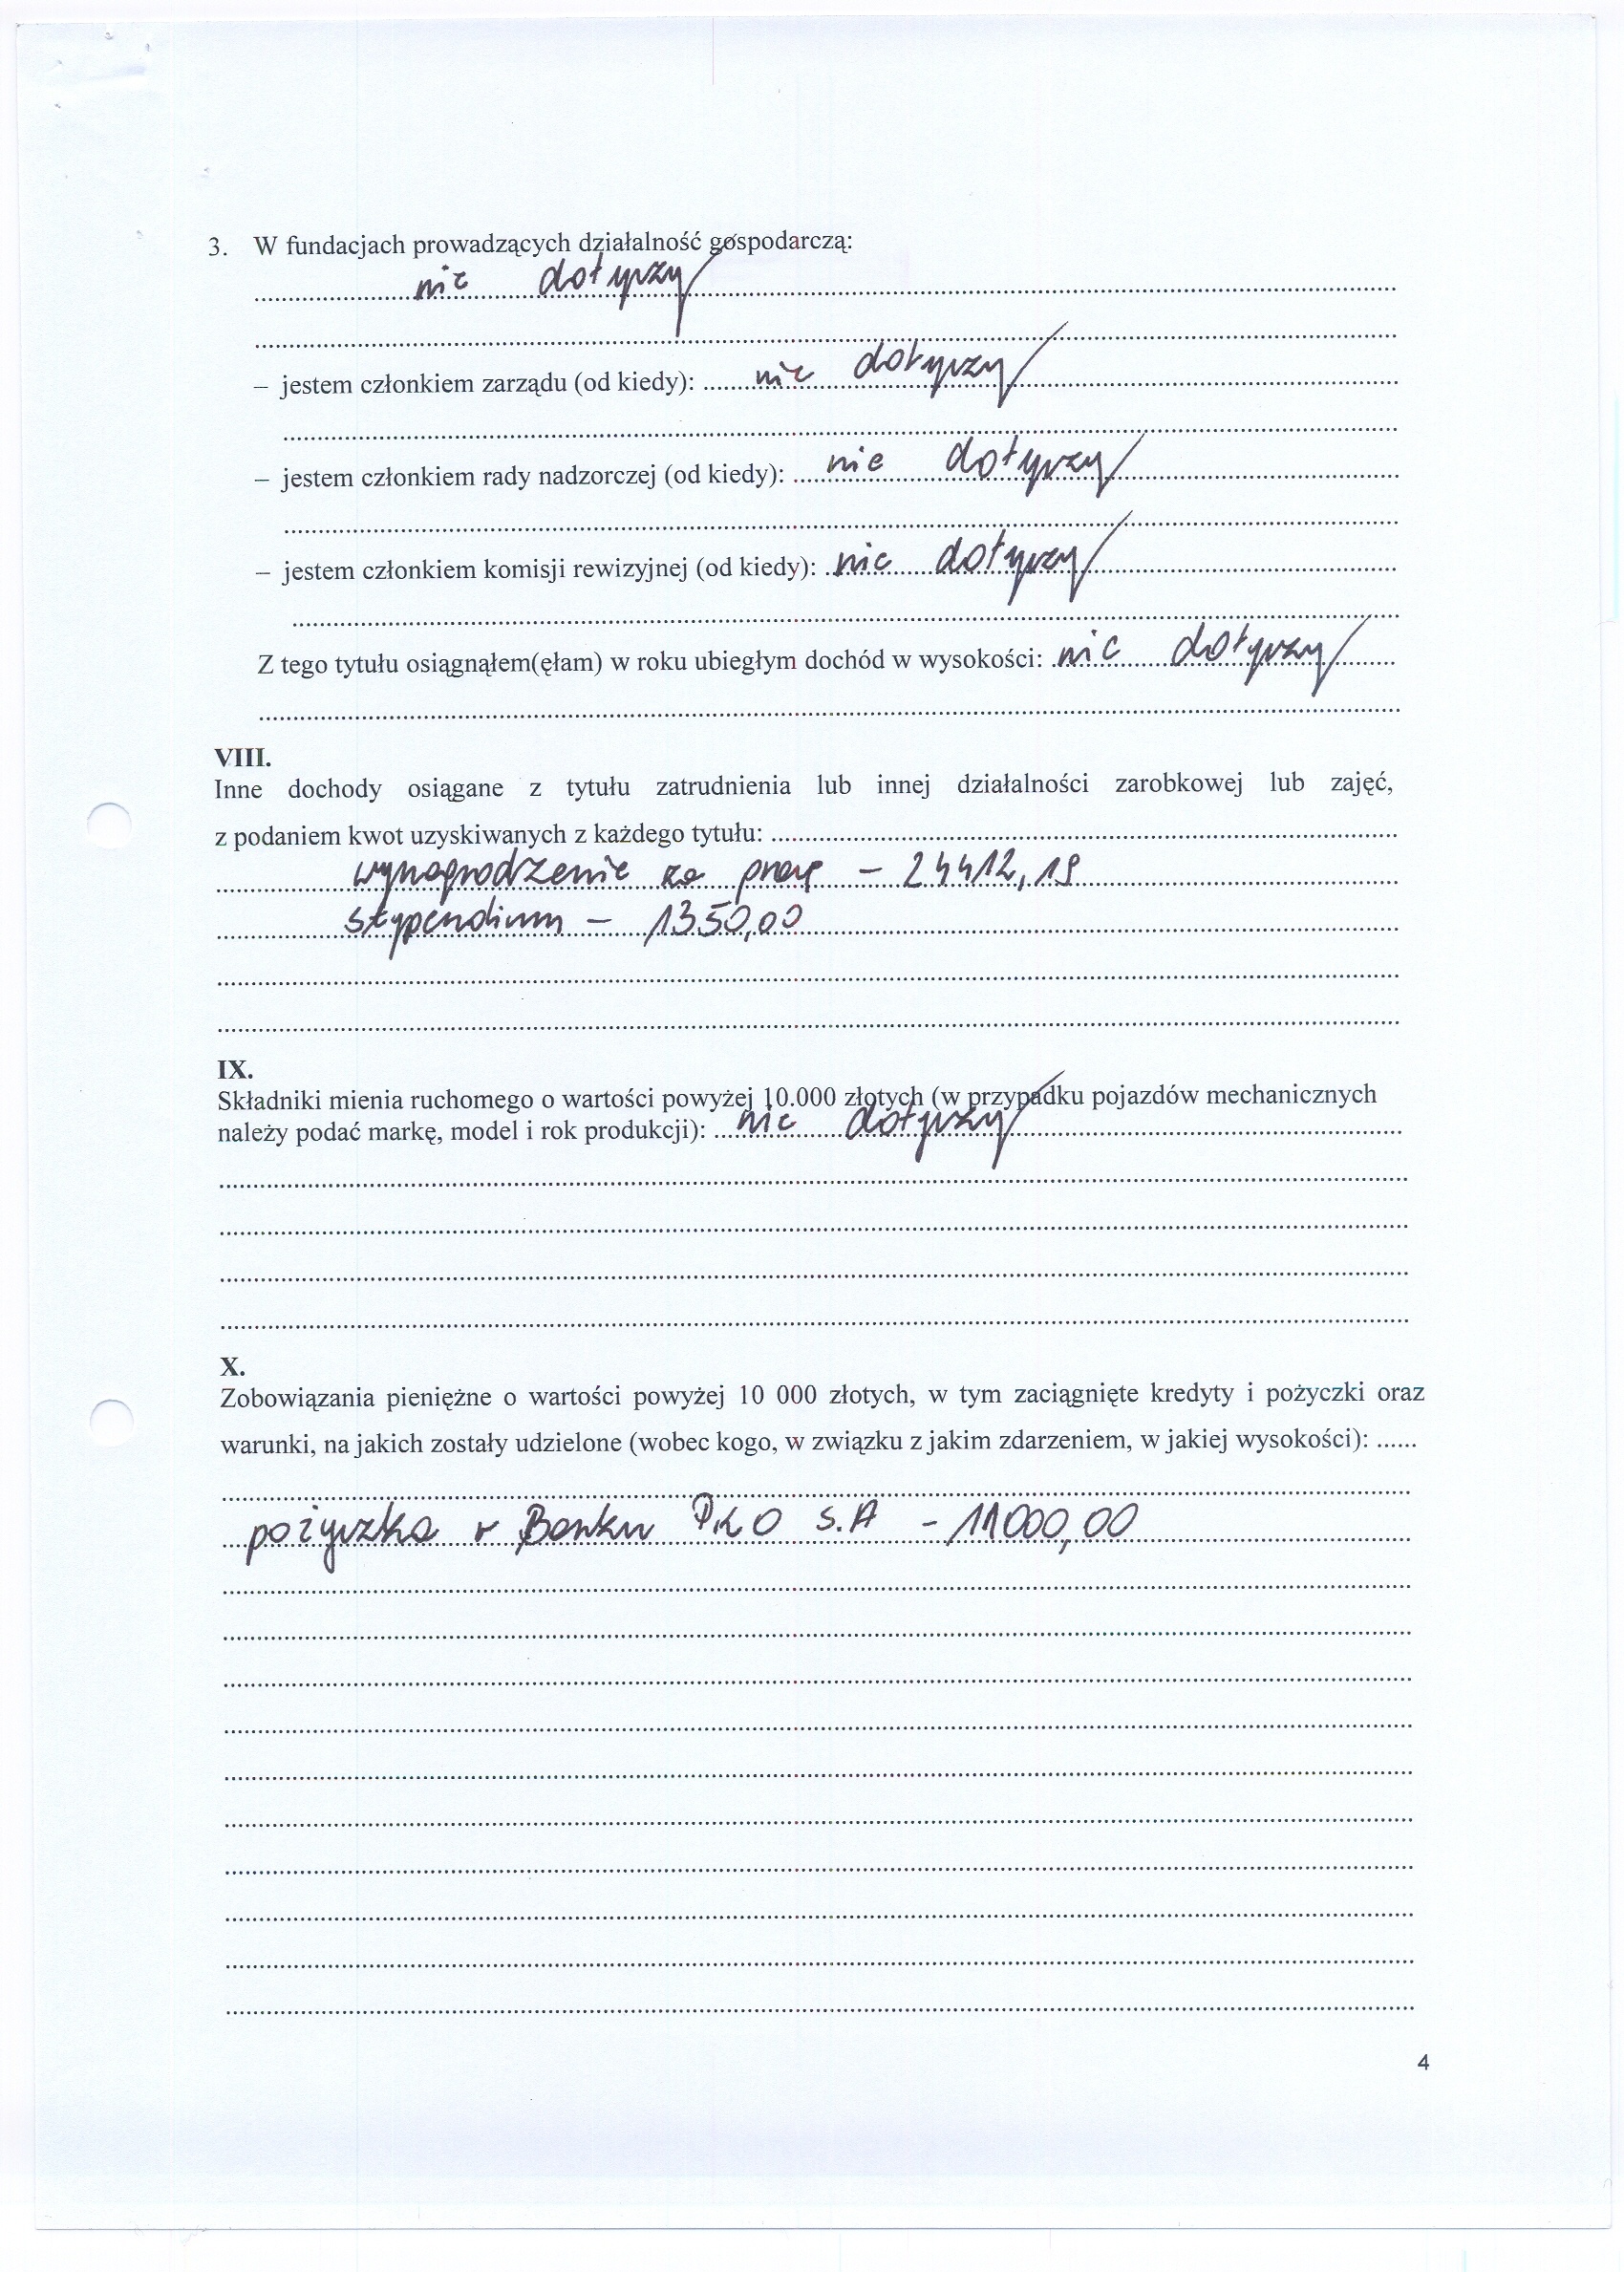 3. W fundacjach prowadzących działalność gospodarczą:
nie dotyczy
– jestem członkiem zarządu (od kiedy): nie dotyczy
– jestem członkiem rady nadzorczej (od kiedy): nie dotyczy
– jestem członkiem komisji rewizyjnej (od kiedy): nie dotyczy
Z tego tytułu osiągnąłem(ęłam) w roku ubiegłym dochód w wysokości: nie dotyczy
VIII.
Inne dochody osiągane z tytułu zatrudnienia lub innej działalności zarobkowej lub zajęć,
z podaniem kwot uzyskiwanych z każdego tytułu:
wynagrodzenie za pracę – 24412,19
stypendium – 1350,00
IX.
Składniki mienia ruchomego o wartości powyżej 10.000 złotych (w przypadku pojazdów mechanicznych
należy podać markę, model i rok produkcji): nie dotyczy
X.
Zobowiązania pieniężne o wartości powyżej 10 000 złotych, w tym zaciągnięte kredyty i pożyczki oraz
warunki, na jakich zostały udzielone (wobec kogo, w związku z jakim zdarzeniem, w jakiej wysokości): ......
pożyczka w Banku PKO S.A - 11000,00
4